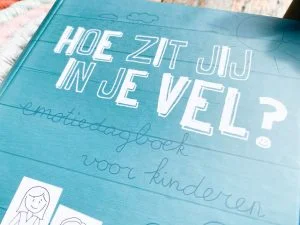 HOE ZIT JIJ
IN JE VEL?
emotiedagboek
voor kinderen